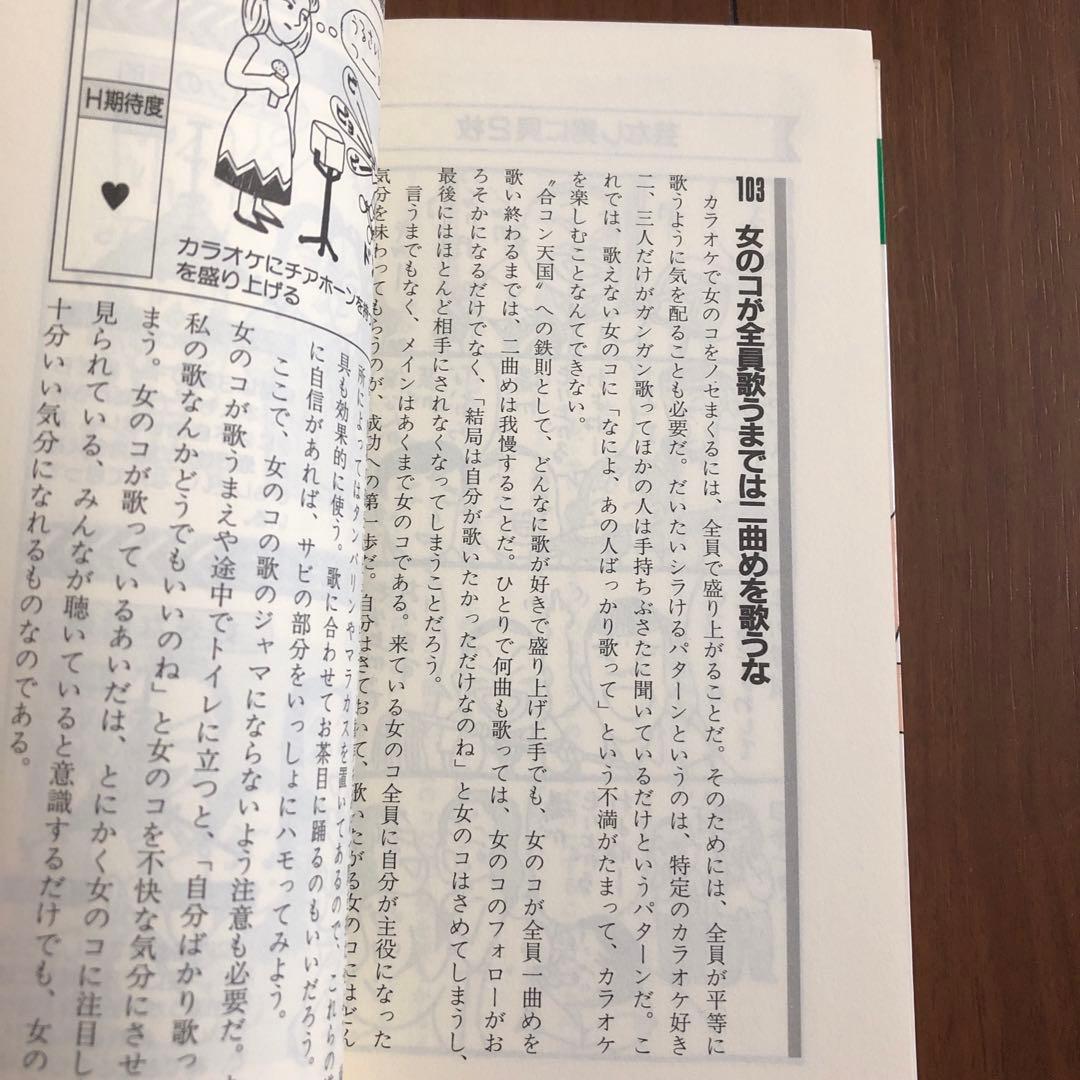 103 女のコが全員歌うまでは二曲めを歌うな
カラオケで女のコをノセまくるには、全員で盛り上がることだ。そのためには、全員が平等に
歌うように気を配ることも必要だ。だいたいシラけるパターンというのは、特定のカラオケ好き
二、三人だけがガンガン歌ってほかの人は手持ちぶさたに聞いているだけというパターンだ。こ
れでは、歌えない女のコに「なによ、あの人ばっかり歌って」という不満がたまって、カラオケ
を楽しむことなんてできない。
〝合コン天国〟への鉄則として、どんなに歌が好きで盛り上げ上手でも、女のコが全員一曲めを
歌い終わるまでは、二曲めは我慢することだ。ひとりで何曲も歌っては、女のコのフォローがお
ろそかになるだけでなく、「結局は自分が歌いたかっただけなのね」と女のコはさめてしまうし、
最後にはほとんど相手にされなくなってしまうことだろう。
言うまでもなく、メインはあくまで女のコである。来ている女のコ全員に自分が主役になった
気分を味わってもらうのが、成功への第一歩だ。自分はさておいて、歌いたがる女のコにはどん
うるさい
ピー
ピョー
ピー
H期待度
♥
カラオケにチアホーンを持
を盛り上げる
所によってはタンバリンやマラカスを置いてあるので、これらの
具も効果的に使う。歌に合わせてお茶目に踊るのもいいだろう。
に自信があれば、サビの部分をいっしょにハモってみよう。
ここで、女のコの歌のジャマにならないよう注意も必要だ。
女のコが歌うまえや途中でトイレに立つと、「自分ばかり歌っ
私の歌なんかどうでもいいのね」と女のコを不快な気分にさせ
まう。女のコが歌っているあいだは、とにかく女のコに注目し
見られている、みんなが聴いていると意識するだけでも、女の
十分いい気分になれるものなのである。